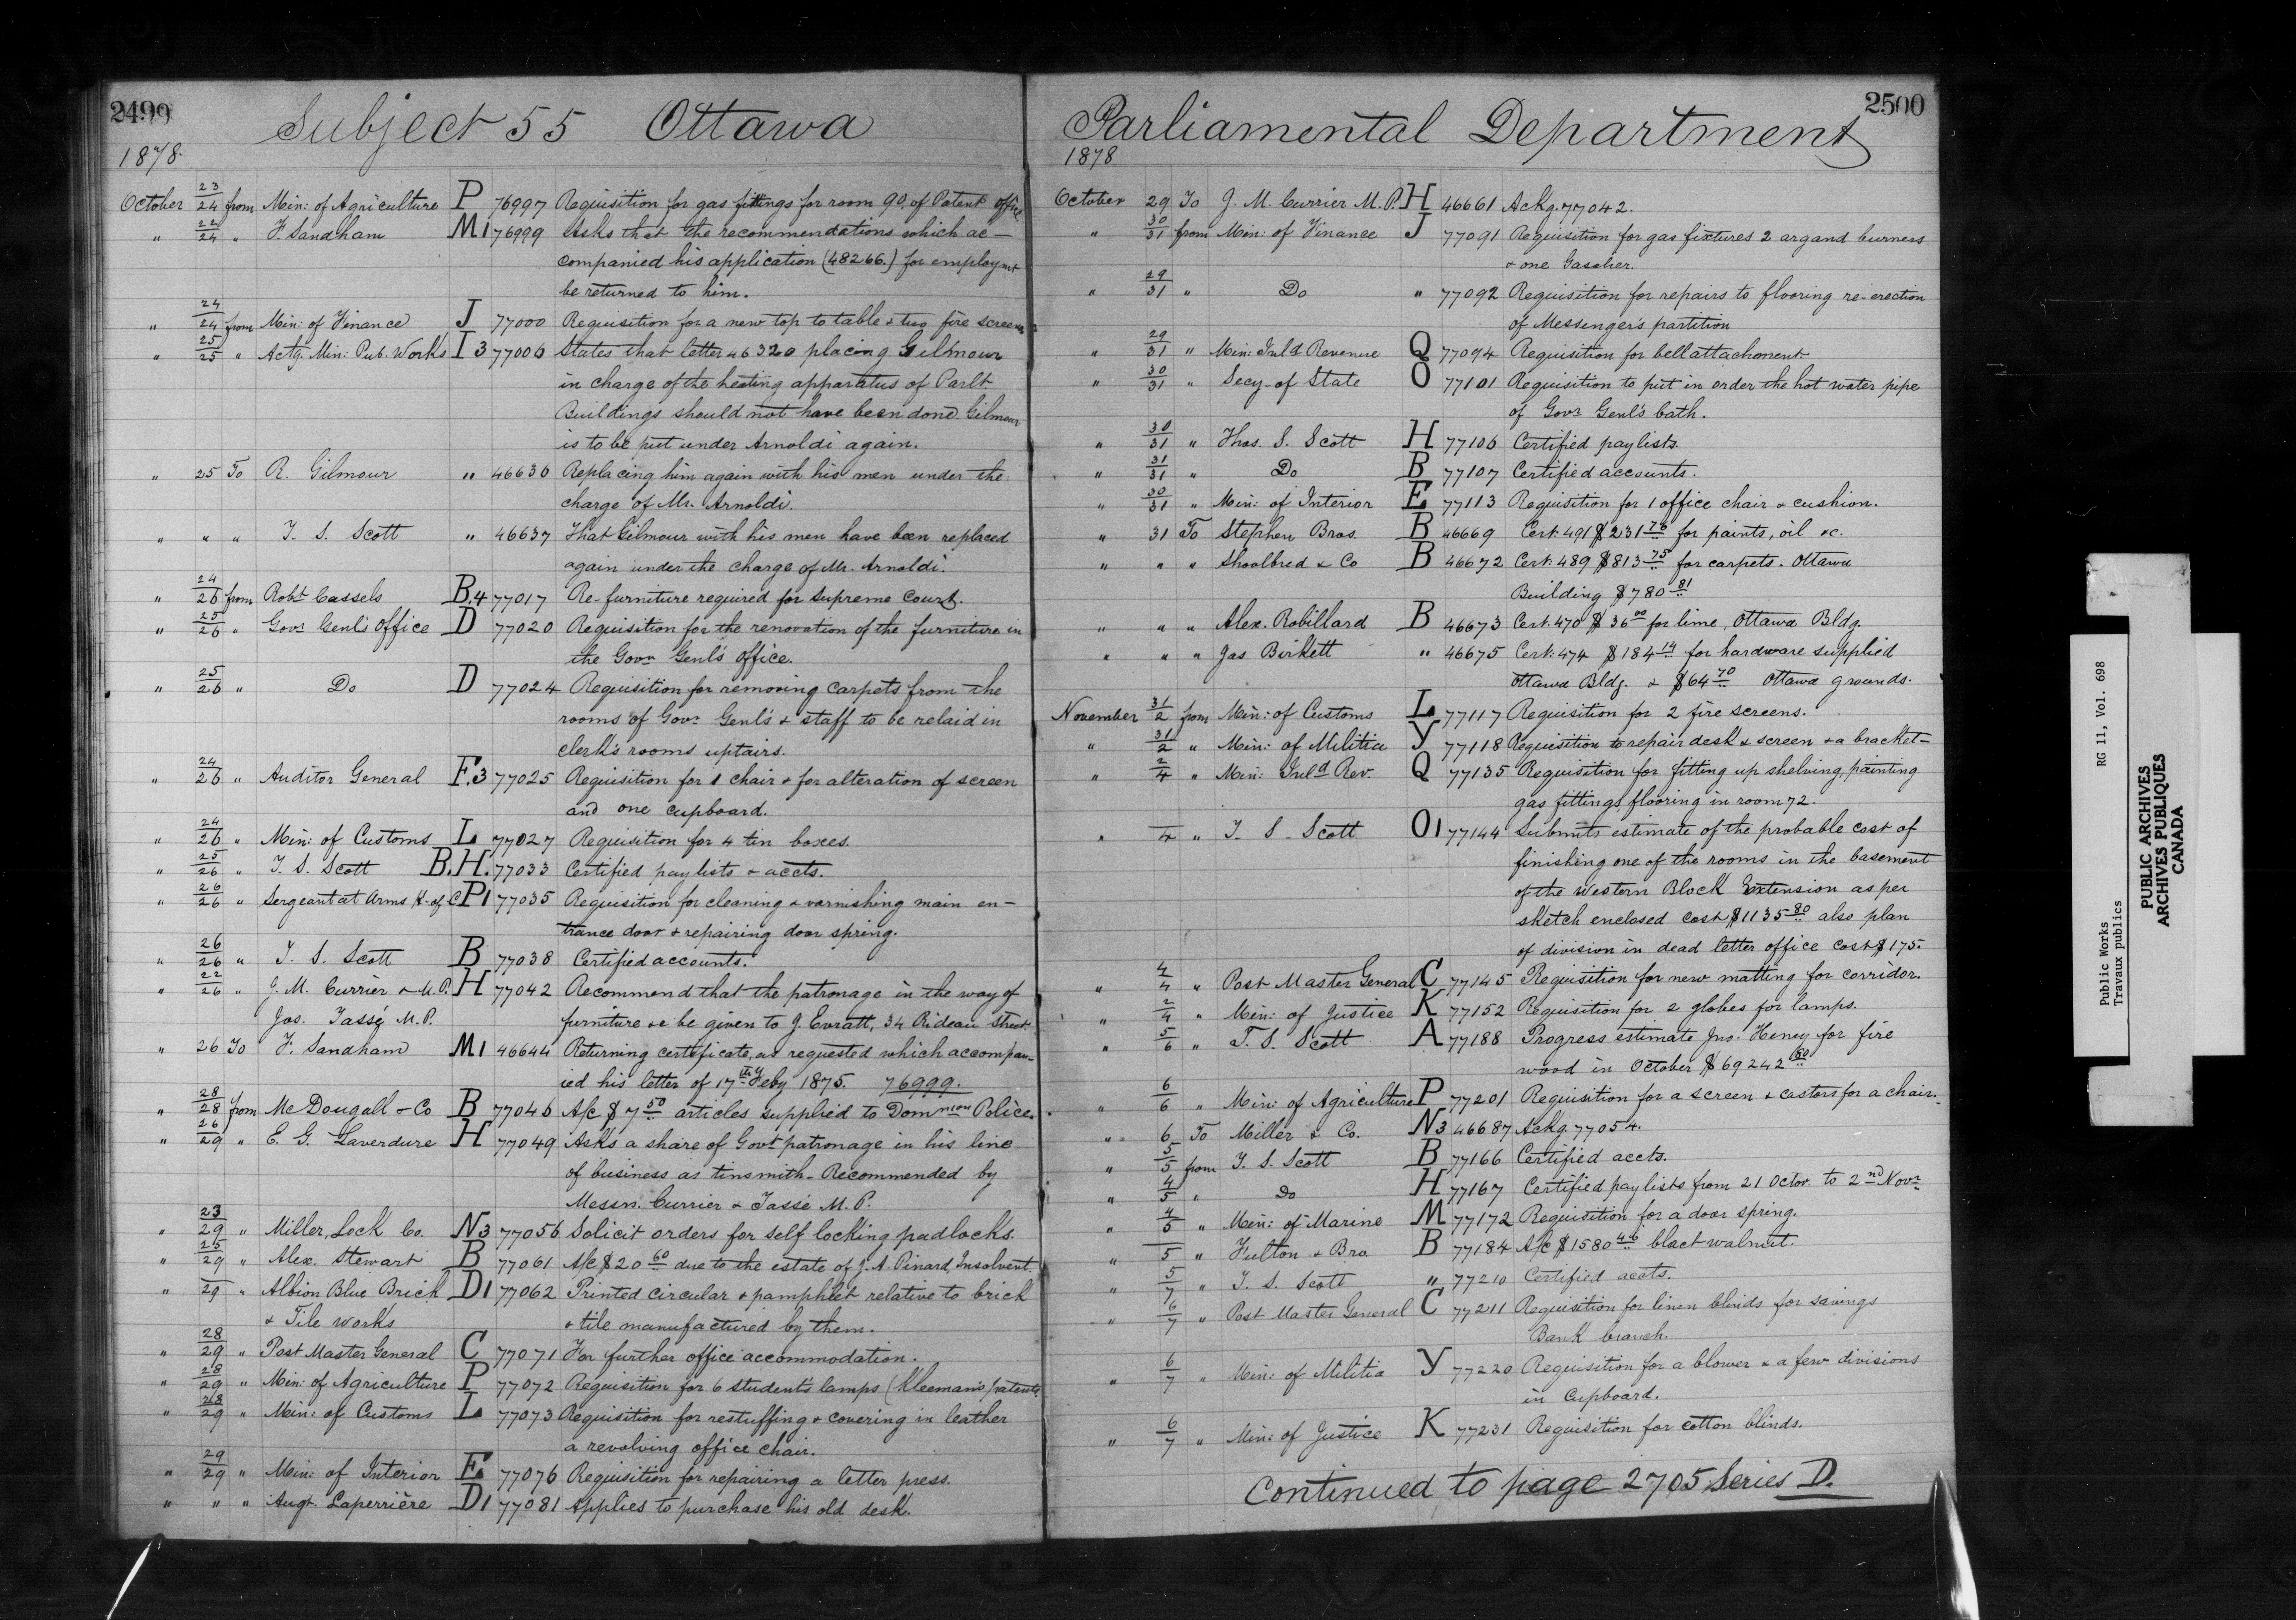 2499
Subject 55 Ottawa
1878.
October 23/24 from Min: of Agriculture P 76997 Requisition for gas fittings for room 90. of Patent office.
" 22/24 " F. Sandham M1 76999 Asks that the recommendations which ac-
companied his application (48266.) for employmt
be returned to him.
" 24/24 from Min: of Finance J 77000 Requisition for a new top to table & two fire screens
" 25/25 " Actg. Min: Pub. Works I3 77006 States that letter 46320 placing Gilmour
in charge of the heating apparatus of Parlt
Buildings should not have been done. Gilmour
is to be put under Arnoldi again.
" 25 To R. Gilmour " 46636 Replacing him again with his men under the
charge of Mr. Arnoldi.
" " " T. S. Scott " 46637 That Gilmour with his men have been replaced
again under the charge of Mr. Arnoldi.
" 24/26 from Robt Cassels B.4 77017 Re-furniture required for Supreme Court.
" 25/26 " Govr Genl's Office D 77020 Requisition for the renovation of the furniture in
the Govr Genl's office.
" 25/26 " Do D 77024 Requisition for removing carpets from the
rooms of Govr Genl's & staff to be relaid in
clerk's rooms uptairs.
" 24/26 " Auditor General F.3 77025 Requisition for 1 chair & for alteration of screen
and one cupboard.
" 24/26 " Min: of Customs L 77027 Requisition for 4 tin boxes.
" 25/26 " T. S. Scott B.H. 77033 Certified pay lists & accts.
" 26/26 " Sergeant at Arms H. of C P1 77035 Requisition for cleaning & varnishing main en-
trance door & repairing door spring.
" 26/26 " T. S. Scott B 77038 Certified accounts.
" 22/26 " J. M. Currier & M.P. H 77042 Recommend that the patronage in the way of
Jos. Tassé M.P. furniture &c be given to J. Evratt, 34 Rideau Street.
" 26 To F. Sandham M1 46644 Returning certificate, as requested which accompan-
ied his letter of 17th Feby 1875. 76999.
" 28/28 from McDougall & Co B 77046 A/c $7 50 articles supplied to Domnion Police.
" 26/29 " E. G. Laverdure H 77049 Asks a share of Govt patronage in his line
of business as tinsmith- Recommended by
Messrs. Currier & Tassé M.P.
" 23/29 " Miller, Lock Co. N3 77056 Solicit orders for self locking padlocks.
" 25/29 " Alex. Stewart B 77061 A/c $20 60 due to the estate of J. A. Pinard, Insolvent.
" 29 " Albion Blue Brick D1 77062 Printed circular & pamphlet relative to brick
& Tile works & tile manufactured by them.
" 28/29 " Post Master General C 77071 For further office accommodation.
" 28/29 " Min: of Agriculture P 77072 Requisition for 6 students lamps (Kleeman's patent)
" 28/29 " Min: of Customs L 77073 Requisition for restuffing & covering in leather
a revolving office chair.
" 29/29 " Min: of Interior E 77076 Requisition for repairing a letter press.
" " " Augt. Laperrière D1 77081 Applies to purchase his old desk.
2500
Parliamental Department
1878
October 29 To J. M. Currier M.P. H 46661 Ackg. 77042.
" 30/31 from Min: of Finance J 77091 Requisition for gas fixtures 2 argand burners
& one Gasalier.
" 29/31 " Do " 77092 Requisition for repairs to flooring re-erection
of Messenger's partition
" 29/31 " Min: Inld Revenue Q 77094 Requisition for bell attachment
" 30/31 " Secy of State O 77101 Requisition to put in order the hot water pipe
of Govr Genl's bath.
" 30/31 " Thos. S. Scott H 77106 Certified paylists.
" 31/31 " Do B 77107 Certified accounts.
" 30/31 " Min: of Interior E 77113 Requisition for 1 office chair & cushion.
" 31 To Stephen Bros. B 46669 Cert. 491 $231 76 for paints, oil &c.
" " " Shoolbred & Co B 46672 Cert: 489 $813 75 for carpets. Ottawa
Building $780 81
" " " Alex. Robillard B 46673 Cert: 470 $36 00 for lime, Ottawa Bldg.
" " " Jas Birkett " 46675 Cert: 474 $184 14 for hardware supplied
Ottawa Bldg. & $64 70 Ottawa grounds.
November 31/2 from Min: of Customs L 77117 Requisition for 2 fire screens.
" 31/2 " Min: of Militia Y 77118 Requisition to repair desk & screen & a bracket-
" 2/4 " Min: Inld Rev. Q 77135 Requisition for fitting up shelving, painting
gas fittings flooring in room 72.
" 4 " T. S. Scott O1 77144 Submits estimate of the probable cost of
finishing one of the rooms in the basement
of the Western Block Extension as per
sketch enclosed cost $1135 80 also plan
of division in dead letter office cost $175.
" 4/4 " Post Master General C 77145 Requisition for new matting for corridor.
" 2/4 " Min: of Justice K 77152 Requisition for 2 globes for lamps.
" 5/6 " T. S. Scott A 77188 Progress estimate Jno. Heney for fire
wood in October $69242 50
" 6/6 " Min: of Agriculture P 77201 Requisition for a screen & castors for a chair.
" 6 To Miller & Co. N3 46687 Ackg. 77054.
" 5/5 from T. S. Scott B 77166 Certified accts.
" 4/5 " Do H 77167 Certified paylists from 21 Octor. to 2nd Novr
" 4/5 " Min: of Marine M 77172 Requisition for a door spring.
" 5 " Fulton & Bro B 77184 A/c $1580 46 black walnut.
" 5/7 " T. S. Scott " 77210 Certified accts.
" 6/7 " Post Master General C 77211 Requisition for linen blinds for savings
Bank branch.
" 6/7 " Min: of Militia Y 77220 Requisition for a blower & a few divisions
in Cupboard.
" 6/7 " Min: of Justice K 77231 Requisition for cotton blinds.
Continued to page 2705 Series D.
Public Works RG 11, Vol. 698
Travaux publics
PUBLIC ARCHIVES
ARCHIVES PUBLIQUES
CANADA